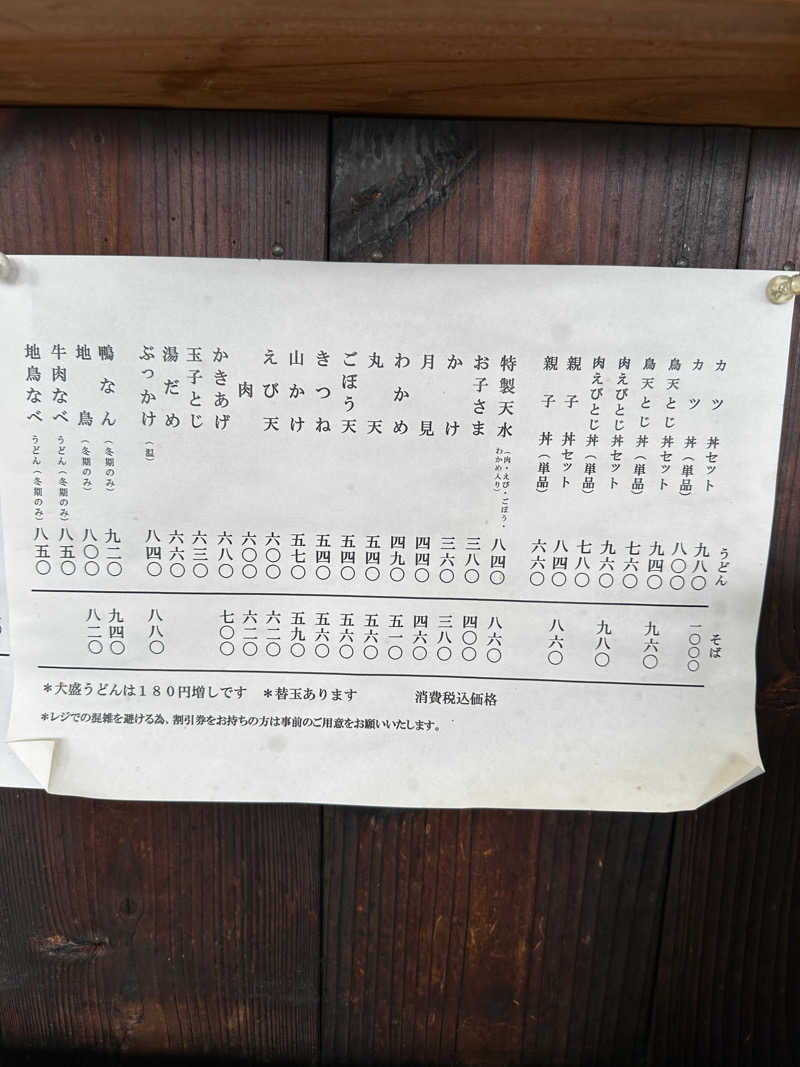 うどん そば
カツ丼セット 九八〇 一〇〇〇
カツ丼(単品) 八〇〇
鳥天とじ丼セット 九四〇 九六〇
鳥天とじ丼(単品) 七六〇
肉えびとじ丼セット 九六〇 九八〇
肉えびとじ丼(単品) 七八〇
親子丼セット 八四〇 八六〇
親子丼(単品) 六六〇
特製天水(肉・えび・ごぼう・わかめ入り) 八四〇 八六〇
お子さま 三八〇 四〇〇
かけ 三六〇 三八〇
月見 四四〇 四六〇
わかめ 四九〇 五一〇
丸天 五四〇 五六〇
ごぼう天 五四〇 五六〇
きつね 五四〇 五六〇
山かけ 五七〇 五九〇
えび天 六〇〇 六二〇
肉 六〇〇 六二〇
かきあげ 六八〇 七〇〇
玉子とじ 六三〇
湯だめ 六六〇
ぶっかけ(温) 八四〇 八八〇
鴨なん(冬期のみ) 九二〇 九四〇
地鳥(冬期のみ) 八〇〇 八二〇
牛肉なべうどん(冬期のみ) 八五〇
地鳥なべうどん(冬期のみ) 八五〇
*大盛うどんは180円増しです *替玉あります 消費税込価格
*レジでの混雑を避ける為、割引券をお持ちの方は事前のご用意をお願いいたします。